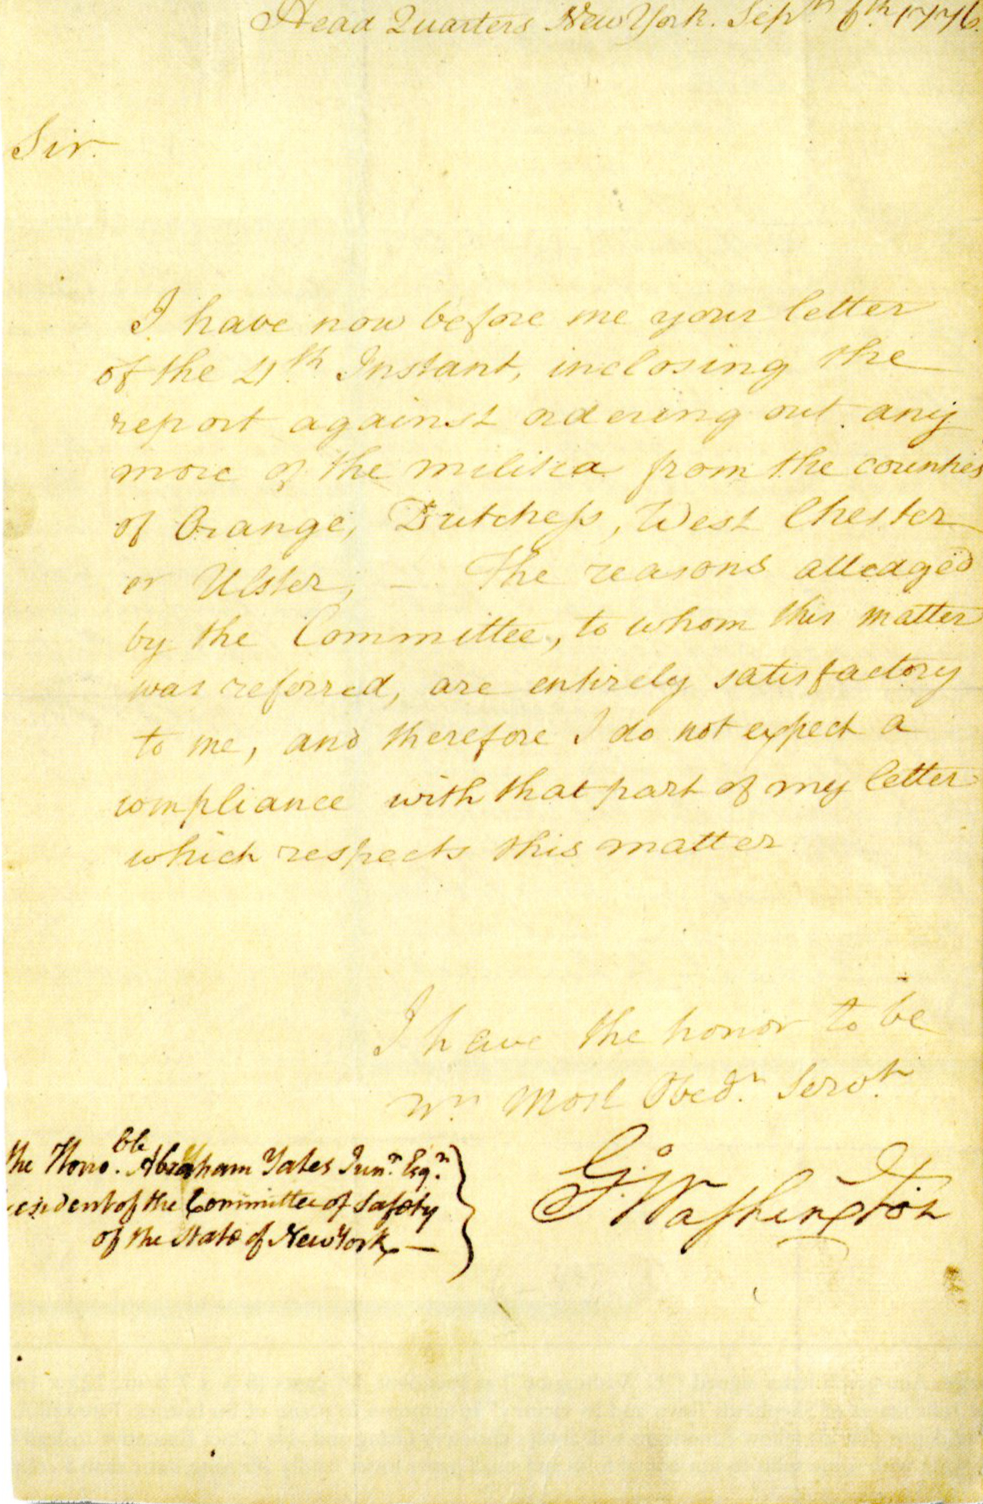 Head Quarters New York. Sepr. 6th. 1776.
Sir.
I have now before me your letter
of the 4th Instant, inclosing the
report against ordering out any
more of the militia from the counties
of Orange, Dutchess, West Chester
or Ulster, — The reasons alledged
by the Committee, to whom this matter
was referred, are entirely satisfactory
to me, and therefore I do not expect a
compliance with that part of my letter
which respects this matter
I have the honor to be
Yr. Most Obedt. Servt.
Go. Washington
the Honoble. Abraham Yates Junr. Esqr.
esident of the Committee of Safety
of the State of New York —